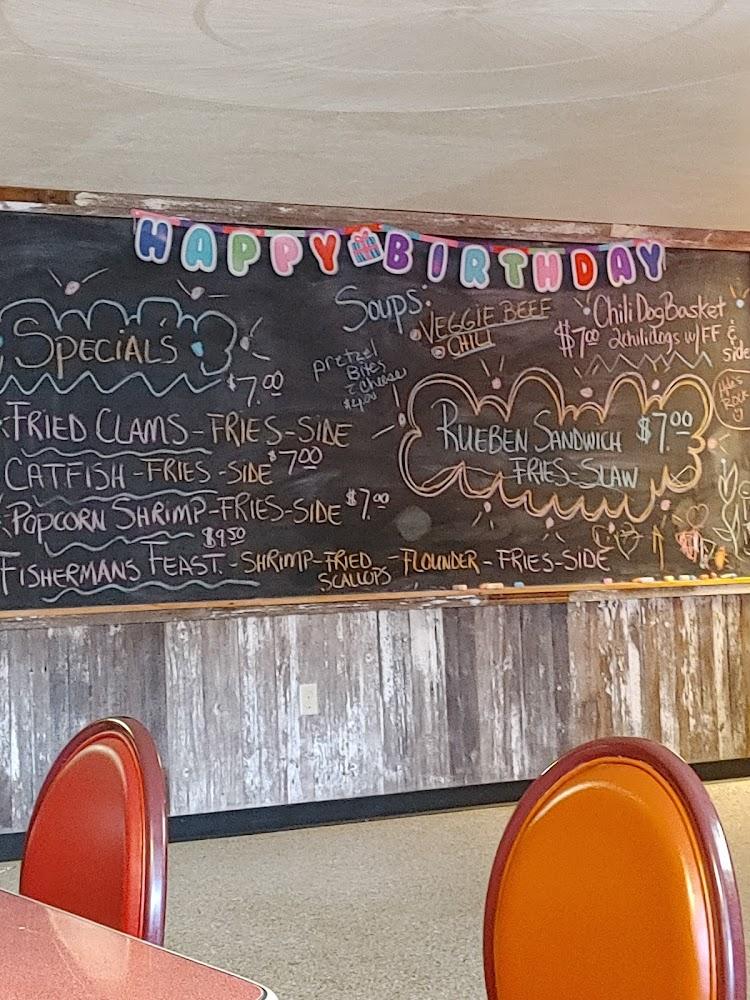 HAPPY BIRTHDAY
SPECIALS
$7.00
FRIED CLAMS-FRIES-SIDE
CATFISH-FRIES-SIDE $7.00
POPCORN SHRIMP-FRIES-SIDE $7.00
$9.50
FISHERMANS FEAST.-SHRIMP-FRIED SCALLOPS-FLOUNDER-FRIES-SIDE
SOUPS:
VEGGIE BEEF
CHILI
pretzel
Bites
Cheese
$4.00
Chili Dog Basket
$7.00 2 chili dogs w/ FF &
side
RUEBEN SANDWICH $7.00
FRIES-SLAW